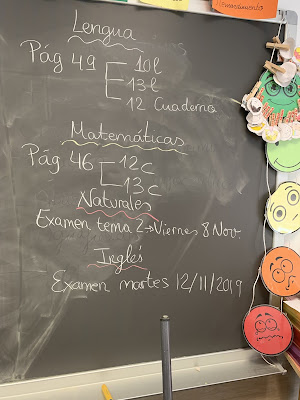 Lengua
Pág 49 10l
13l
12 Cuaderno
Matemáticas
Pág 46 12c
13c
Naturales
Examen tema 2→Viernes 8 Nov.
Inglés
Examen martes 12/11/2019